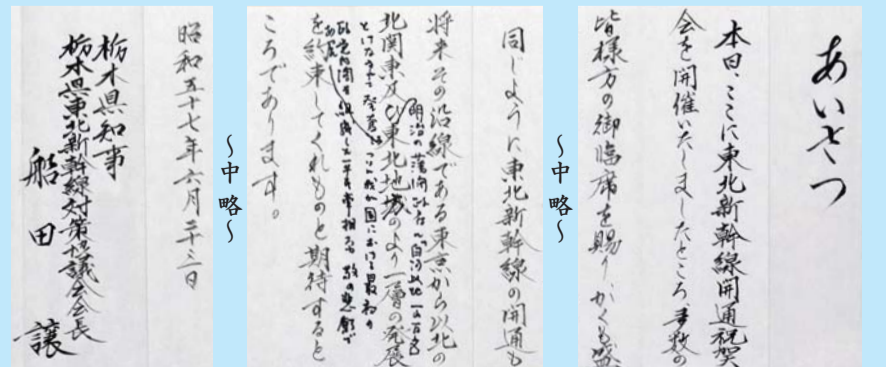 あいさつ
本日、ここに東北新幹線開通祝賀
会を開催いたしましたところ、多数の
皆様方の御臨席を賜り、かくも盛
〜中略〜
同じように東北新幹線の開通も
将来その沿線である東京から以北の
北関東及び東北地方のより一層の発展
を約束してくれものと期待すると
ころであります。
〜中略〜
昭和五十七年六月二十三日
栃木県知事
栃木県東北新幹線対策協議会会長
船田 譲